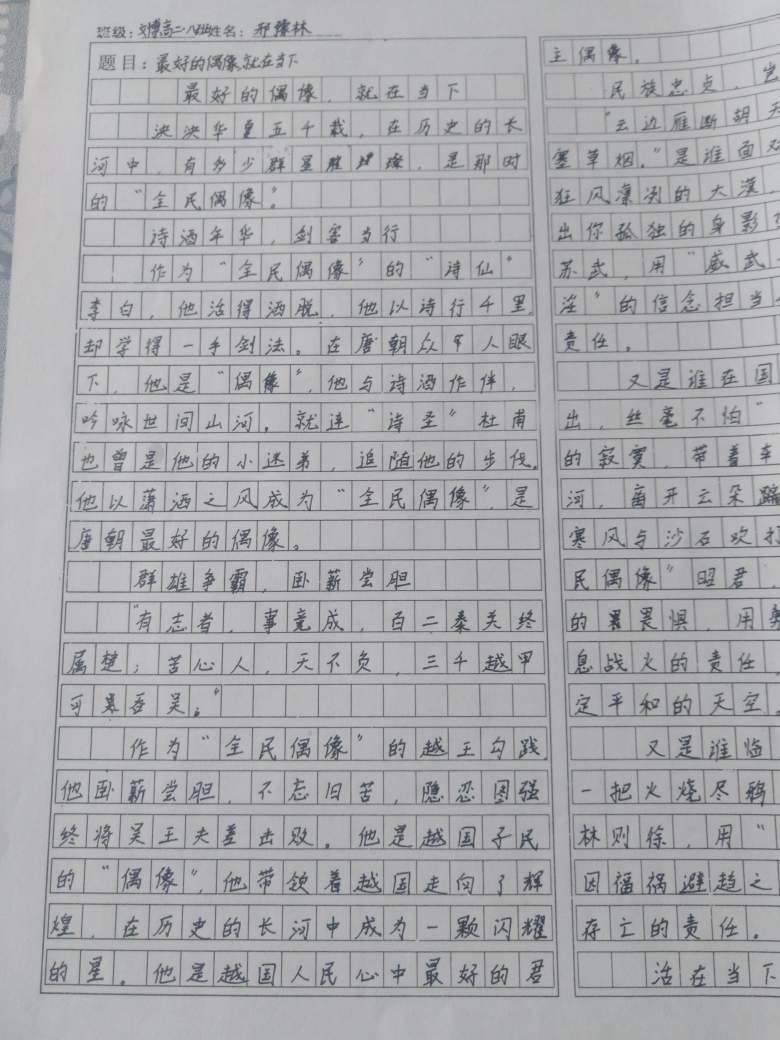 班级: 高二 姓名: 邢豫林
题目: 最好的偶像,就在当下
最好的偶像,就在当下
泱泱华夏五千载,在历史的长
河中,有多少群星璀璨,是那时
的“全民偶像”。
诗酒年华,剑客当行
作为“全民偶像”的“诗仙”
李白,他活得洒脱,他以诗行千里,
却学得一手剑法。在唐朝众军人眼
下,他是“偶像”,他与诗酒作伴,
吟咏世间山河。就连“诗圣”杜甫
也曾是他的小迷弟,追随他的步伐。
他以潇洒之风成为“全民偶像”,是
唐朝最好的偶像。
群雄争霸,卧薪尝胆
“有志者,事竟成,百二秦关终
属楚;苦心人,天不负,三千越甲
可吞吴。”
作为“全民偶像”的越王勾践,
他卧薪尝胆,不忘旧苦,隐忍图强
终将吴王夫差击败。他是越国子民
的“偶像”,他带领着越国走向了辉
煌,在历史的长河中成为一颗闪耀
的星。他是越国人民心中最好的君
主偶像。
民族忠贞,
“云边雁断胡天
塞草烟。”是谁面对
狂风凛冽的大漠,
出你孤独的身影?
苏武,用“威武
淫”的信念担当
责任。
又是谁在国
出,丝毫不怕“
的寂寞,带着车
河,离开云朵
寒风与沙石欢打
民偶像”昭君,
的畏惧,用
息战火的责任,
定平和的天空。
又是谁临
一把火烧尽鸦
林则徐,用“
因福祸避趋之
存亡的责任。
活在当下